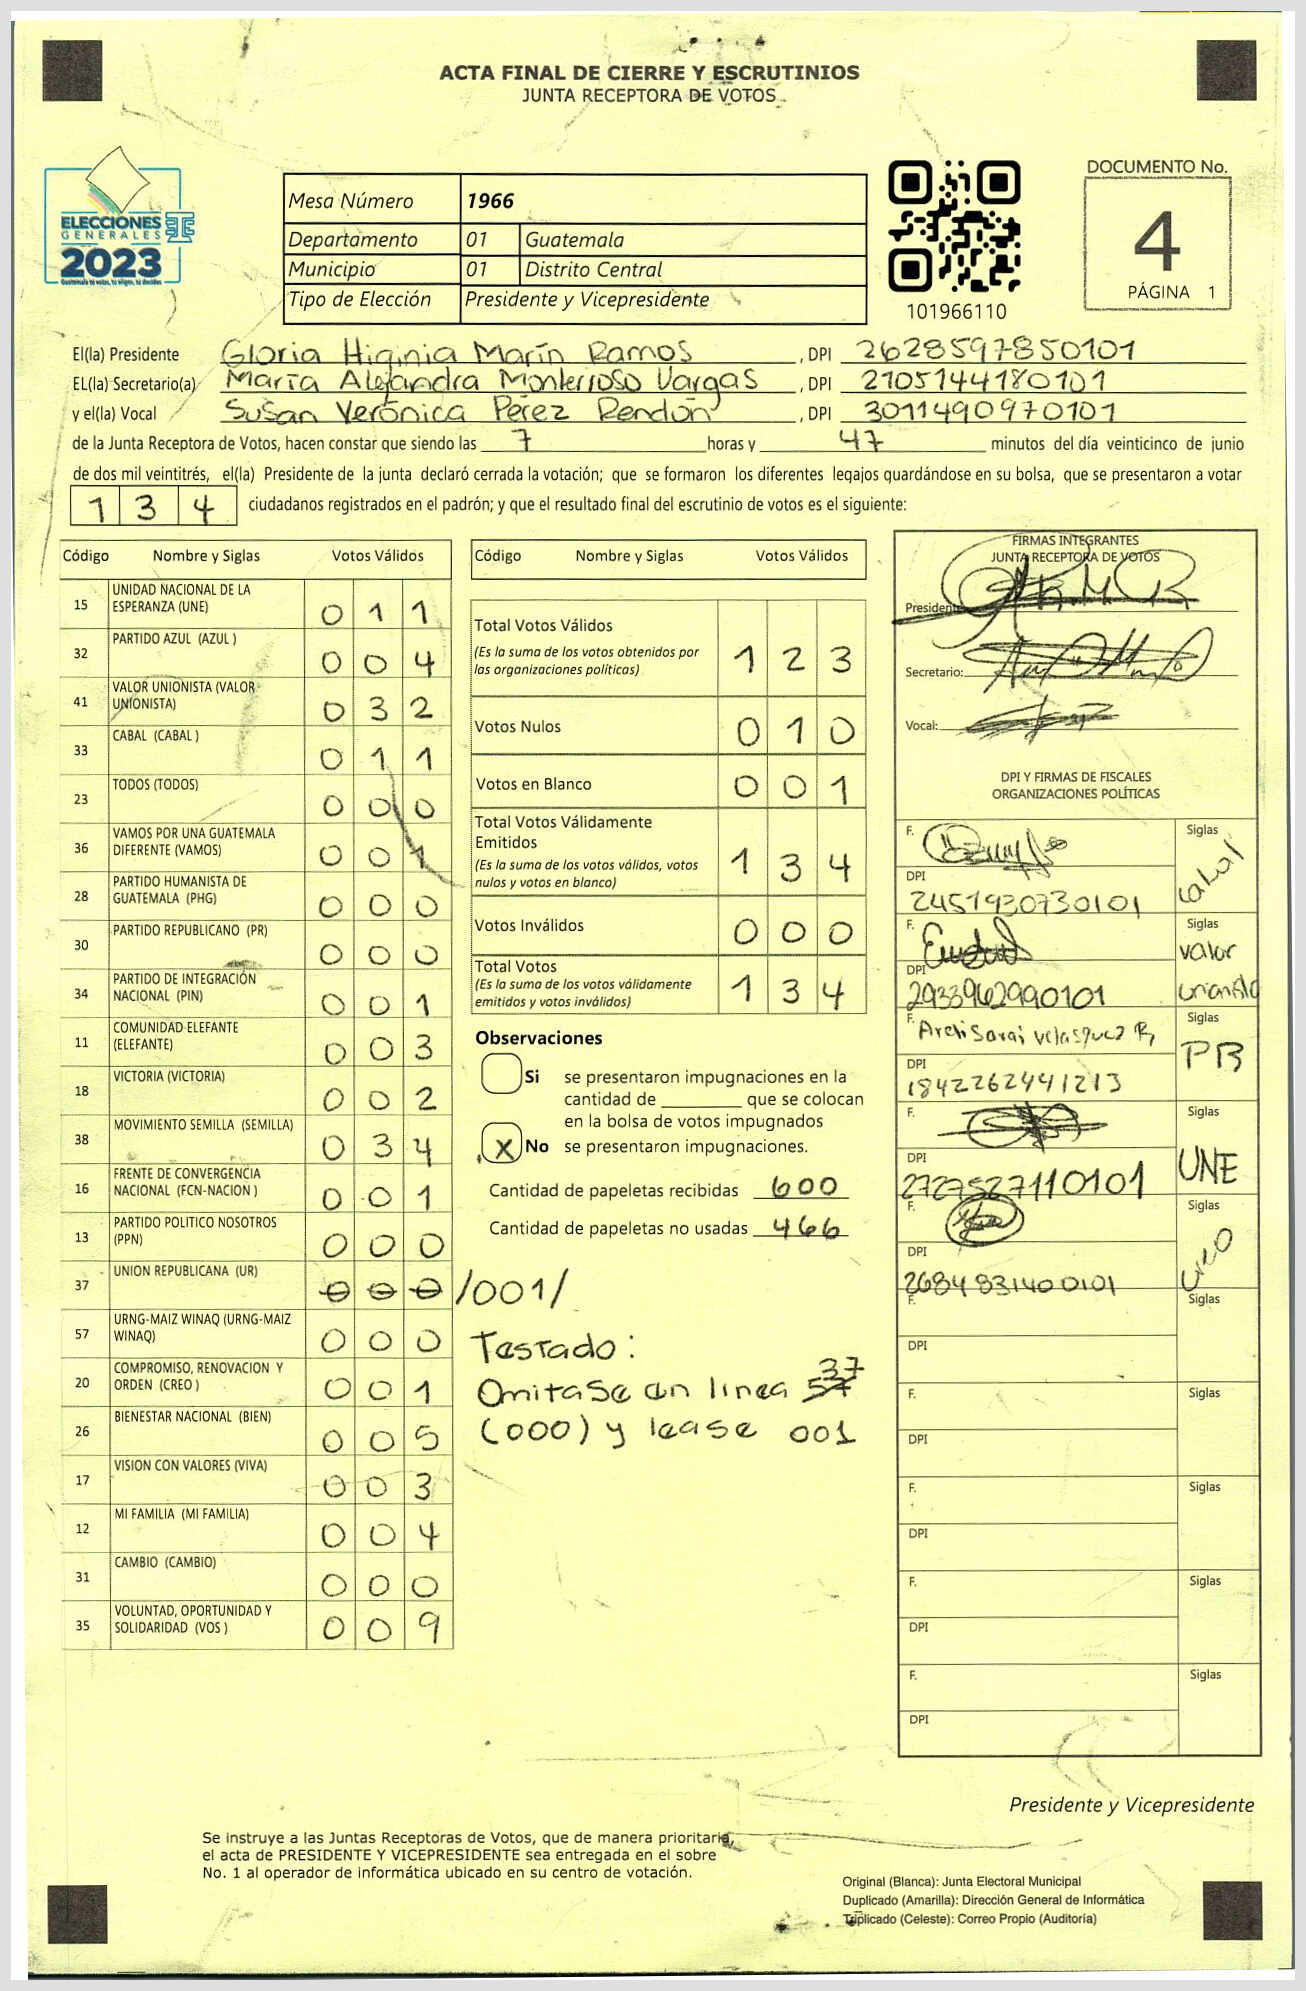 ACTA FINAL DE CIERRE Y ESCRUTINIOS
JUNTA RECEPTORA DE VOTOS
ELECCIONES
GENERALES
2023
Mesa Número 1966
Departamento 01 Guatemala
Municipio 01 Distrito Central
Tipo de Elección Presidente y Vicepresidente
101966110
DOCUMENTO No.
4
PÁGINA 1
El(la) Presidente Gloria Higinia Marín Ramos, DPI 2628597850101
EL(la) Secretario(a) María Alejandra Monterroso Vargas, DPI 2105144180101
y el(la) Vocal Susan Verónica Pérez Rendón, DPI 3011490970101
de la Junta Receptora de Votos, hacen constar que siendo las 7 horas y 47 minutos del día veinticinco de junio
de dos mil veintitrés, el(la) Presidente de la junta declaró cerrada la votación; que se formaron los diferentes legajos guardándose en su bolsa, que se presentaron a votar
134 ciudadanos registrados en el padrón; y que el resultado final del escrutinio de votos es el siguiente:
Código Nombre y Siglas Votos Válidos
15 UNIDAD NACIONAL DE LA
ESPERANZA (UNE) 011
32 PARTIDO AZUL (AZUL ) 004
41 VALOR UNIONISTA (VALOR
UNIONISTA) 032
33 CABAL (CABAL ) 011
23 TODOS (TODOS) 000
36 VAMOS POR UNA GUATEMALA
DIFERENTE (VAMOS) 001
28 PARTIDO HUMANISTA DE
GUATEMALA (PHG) 000
30 PARTIDO REPUBLICANO (PR) 000
34 PARTIDO DE INTEGRACIÓN
NACIONAL (PIN) 001
11 COMUNIDAD ELEFANTE
(ELEFANTE) 003
18 VICTORIA (VICTORIA) 002
38 MOVIMIENTO SEMILLA (SEMILLA) 034
16 FRENTE DE CONVERGENCIA
NACIONAL (FCN-NACION ) 001
13 PARTIDO POLITICO NOSOTROS
(PPN) 000
37 UNION REPUBLICANA (UR) 000 /001/
57 URNG-MAIZ WINAQ (URNG-MAIZ
WINAQ) 000
20 COMPROMISO, RENOVACION Y
ORDEN (CREO ) 001
26 BIENESTAR NACIONAL (BIEN) 005
17 VISION CON VALORES (VIVA) 003
12 MI FAMILIA (MI FAMILIA) 004
31 CAMBIO (CAMBIO) 000
35 VOLUNTAD, OPORTUNIDAD Y
SOLIDARIDAD (VOS ) 009
Código Nombre y Siglas Votos Válidos
Total Votos Válidos
(Es la suma de los votos obtenidos por
las organizaciones políticas) 123
Votos Nulos 010
Votos en Blanco 001
Total Votos Válidamente
Emitidos
(Es la suma de los votos válidos, votos
nulos y votos en blanco) 134
Votos Inválidos 000
Total Votos
(Es la suma de los votos válidamente
emitidos y votos inválidos) 134
Observaciones
Si se presentaron impugnaciones en la
cantidad de ________ que se colocan
en la bolsa de votos impugnados
X No se presentaron impugnaciones.
Cantidad de papeletas recibidas 600
Cantidad de papeletas no usadas 466
Testado:
Omitase en linea 57 37
(000) y lease 001
FIRMAS INTEGRANTES
JUNTA RECEPTORA DE VOTOS
Presidente:
Secretario:
Vocal:
DPI Y FIRMAS DE FISCALES
ORGANIZACIONES POLÍTICAS
F. Siglas cabal
DPI 2451930730101
F. Siglas valor
DPI 2933962990101 unionista
F. Siglas
DPI 1842262441213
F. Siglas UNE
DPI 2727527110101
F. Siglas creo
DPI 2684831400101
F. Siglas
DPI
F. Siglas
DPI
F. Siglas
DPI
F. Siglas
DPI
F. Siglas
DPI
Presidente y Vicepresidente
Se instruye a las Juntas Receptoras de Votos, que de manera prioritaria,
el acta de PRESIDENTE Y VICEPRESIDENTE sea entregada en el sobre
No. 1 al operador de informática ubicado en su centro de votación.
Original (Blanca): Junta Electoral Municipal
Duplicado (Amarilla): Dirección General de Informática
Triplicado (Celeste): Correo Propio (Auditoría)